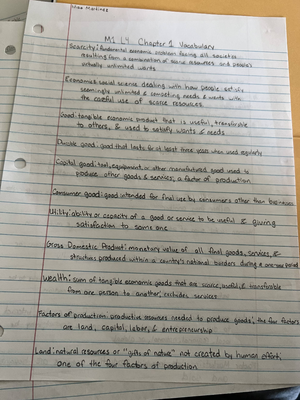 Mise Martinez
M1 L4 Chapter 1 Vocabulary
Scarcity: fundamental economic problem facing all societies
resulting from a combination of scarce resources and people's
virtually unlimited wants
Economics: social science dealing with how people satisfy
seemingly unlimited & competing needs & wants with
the careful use of scarce resources
Good: tangible economic product that is useful, transferable
to others, & used to satisfy wants & needs
Durable good: good that lasts for at least three years when used regularly
Capital good: tool, equipment, or other manufactured good used to
produce other goods & services; a factor of production
Consumer good: good intended for final use by consumers other than businesses
Utility: ability or capacity of a good or service to be useful & giving
satisfaction to some one
Gross Domestic Product: monetary value of all final goods, services, &
structures produced within a country's national borders during a one-year period
Wealth: sum of tangible economic goods that are scarce, useful, & transferable
from one person to another; excludes services
Factors of production: productive resources needed to produce goods; the four factors
are land, capital, labor, & entrepreneurship
Land: natural resources or "gifts of nature" not created by human effort;
one of the four factors of production